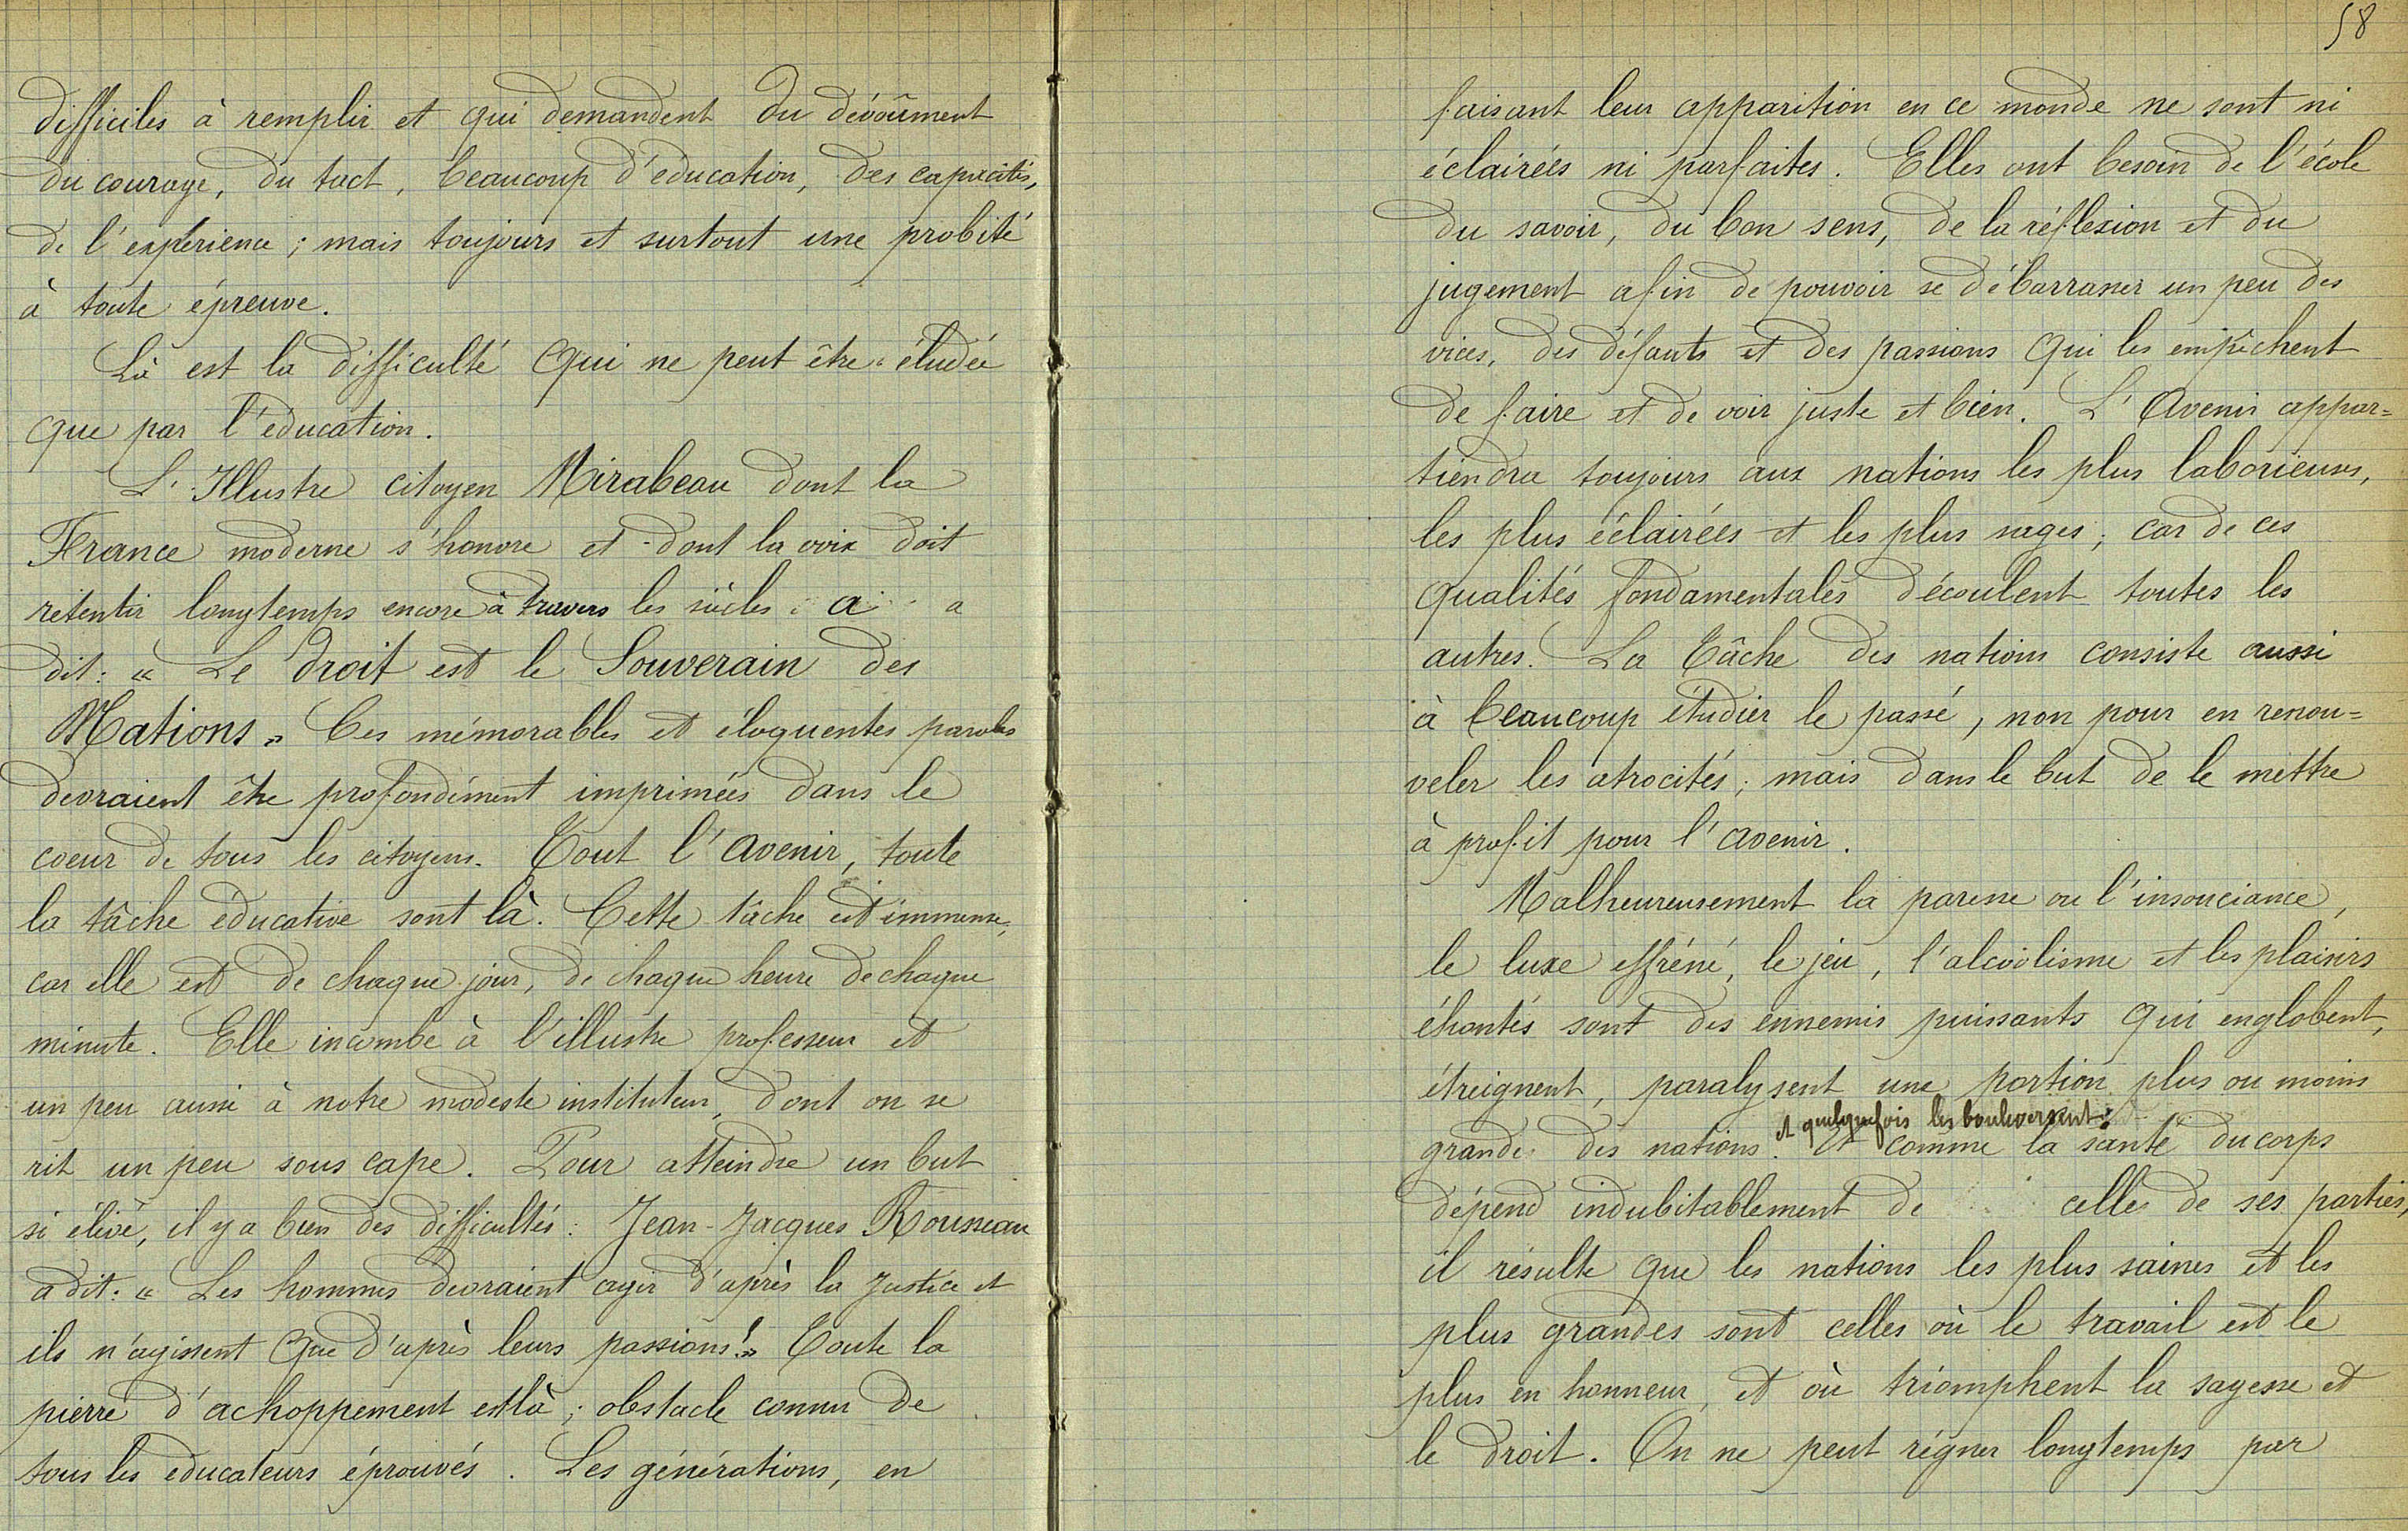 difficiles à remplir et qui demandent du dévoûment
du courage, du tact, beaucoup d'éducation, des capacités,
de l'expérience ; mais toujours et surtout une probité
à toute épreuve.
Là est la difficulté qui ne peut être éludée
que par l'éducation.
L'Illustre citoyen Mirabeau dont la
France moderne s'honore et dont la voix doit
retentir longtemps encore à travers les siècles a a
dit : « Le droit est le Souverain des
Nations » Ces mémorables et éloquentes paroles
devraient être profondément imprimées dans le
coeur de tous les citoyens. Tout l'avenir, toute
la tâche éducative sont là. Cette tâche est immense,
car elle est de chaque jour, de chaque heure de chaque
minute. Elle incombe à l'illustre professeur et
un peu aussi à notre modeste instituteur, dont on se
rit un peu sous cape. Pour atteindre un but
si élevé, il y a bien des difficultés : Jean-Jacques Rousseau
a dit : « Les hommes devraient agir d'après la justice et
ils n'agissent que d'après leurs passions ! » Toute la
pierre d'achoppement est là ; obstacle connu de
tous les éducateurs éprouvés. Les générations, en
58
faisant leur apparition en ce monde ne sont ni
éclairées ni parfaites. Elles ont besoin de l'école
du savoir, du bon sens, de la réflexion et du
jugement afin de pouvoir se débarrasser un peu des
vices, des défauts et des passions qui les empêchent
de faire et de voir juste et bien. L'Avenir appar=
tiendra toujours aux nations les plus laborieuses,
les plus éclairées et les plus sages ; car de ces
qualités fondamentales découlent toutes les
autres. La tâche des nations consiste aussi
à beaucoup étudier le passé, non pour en renou=
veler les atrocités ; mais dans le but de le mettre
à profit pour l'avenir.
Malheureusement la paresse ou l'insouciance,
le luxe effréné, le jeu, l'alcoolisme et les plaisirs
éhontés sont des ennemis puissants qui englobent,
étreignent, paralysent une portion plus ou moins
et quelquefois les bouleversent.
grande des nations. Et comme la santé du corps
dépend indubitablement de celle de ses parties,
il résulte que les nations les plus saines et les
plus grandes sont celles où le travail est le
plus en honneur, et où triomphent la sagesse et
le droit. On ne peut régner longtemps par